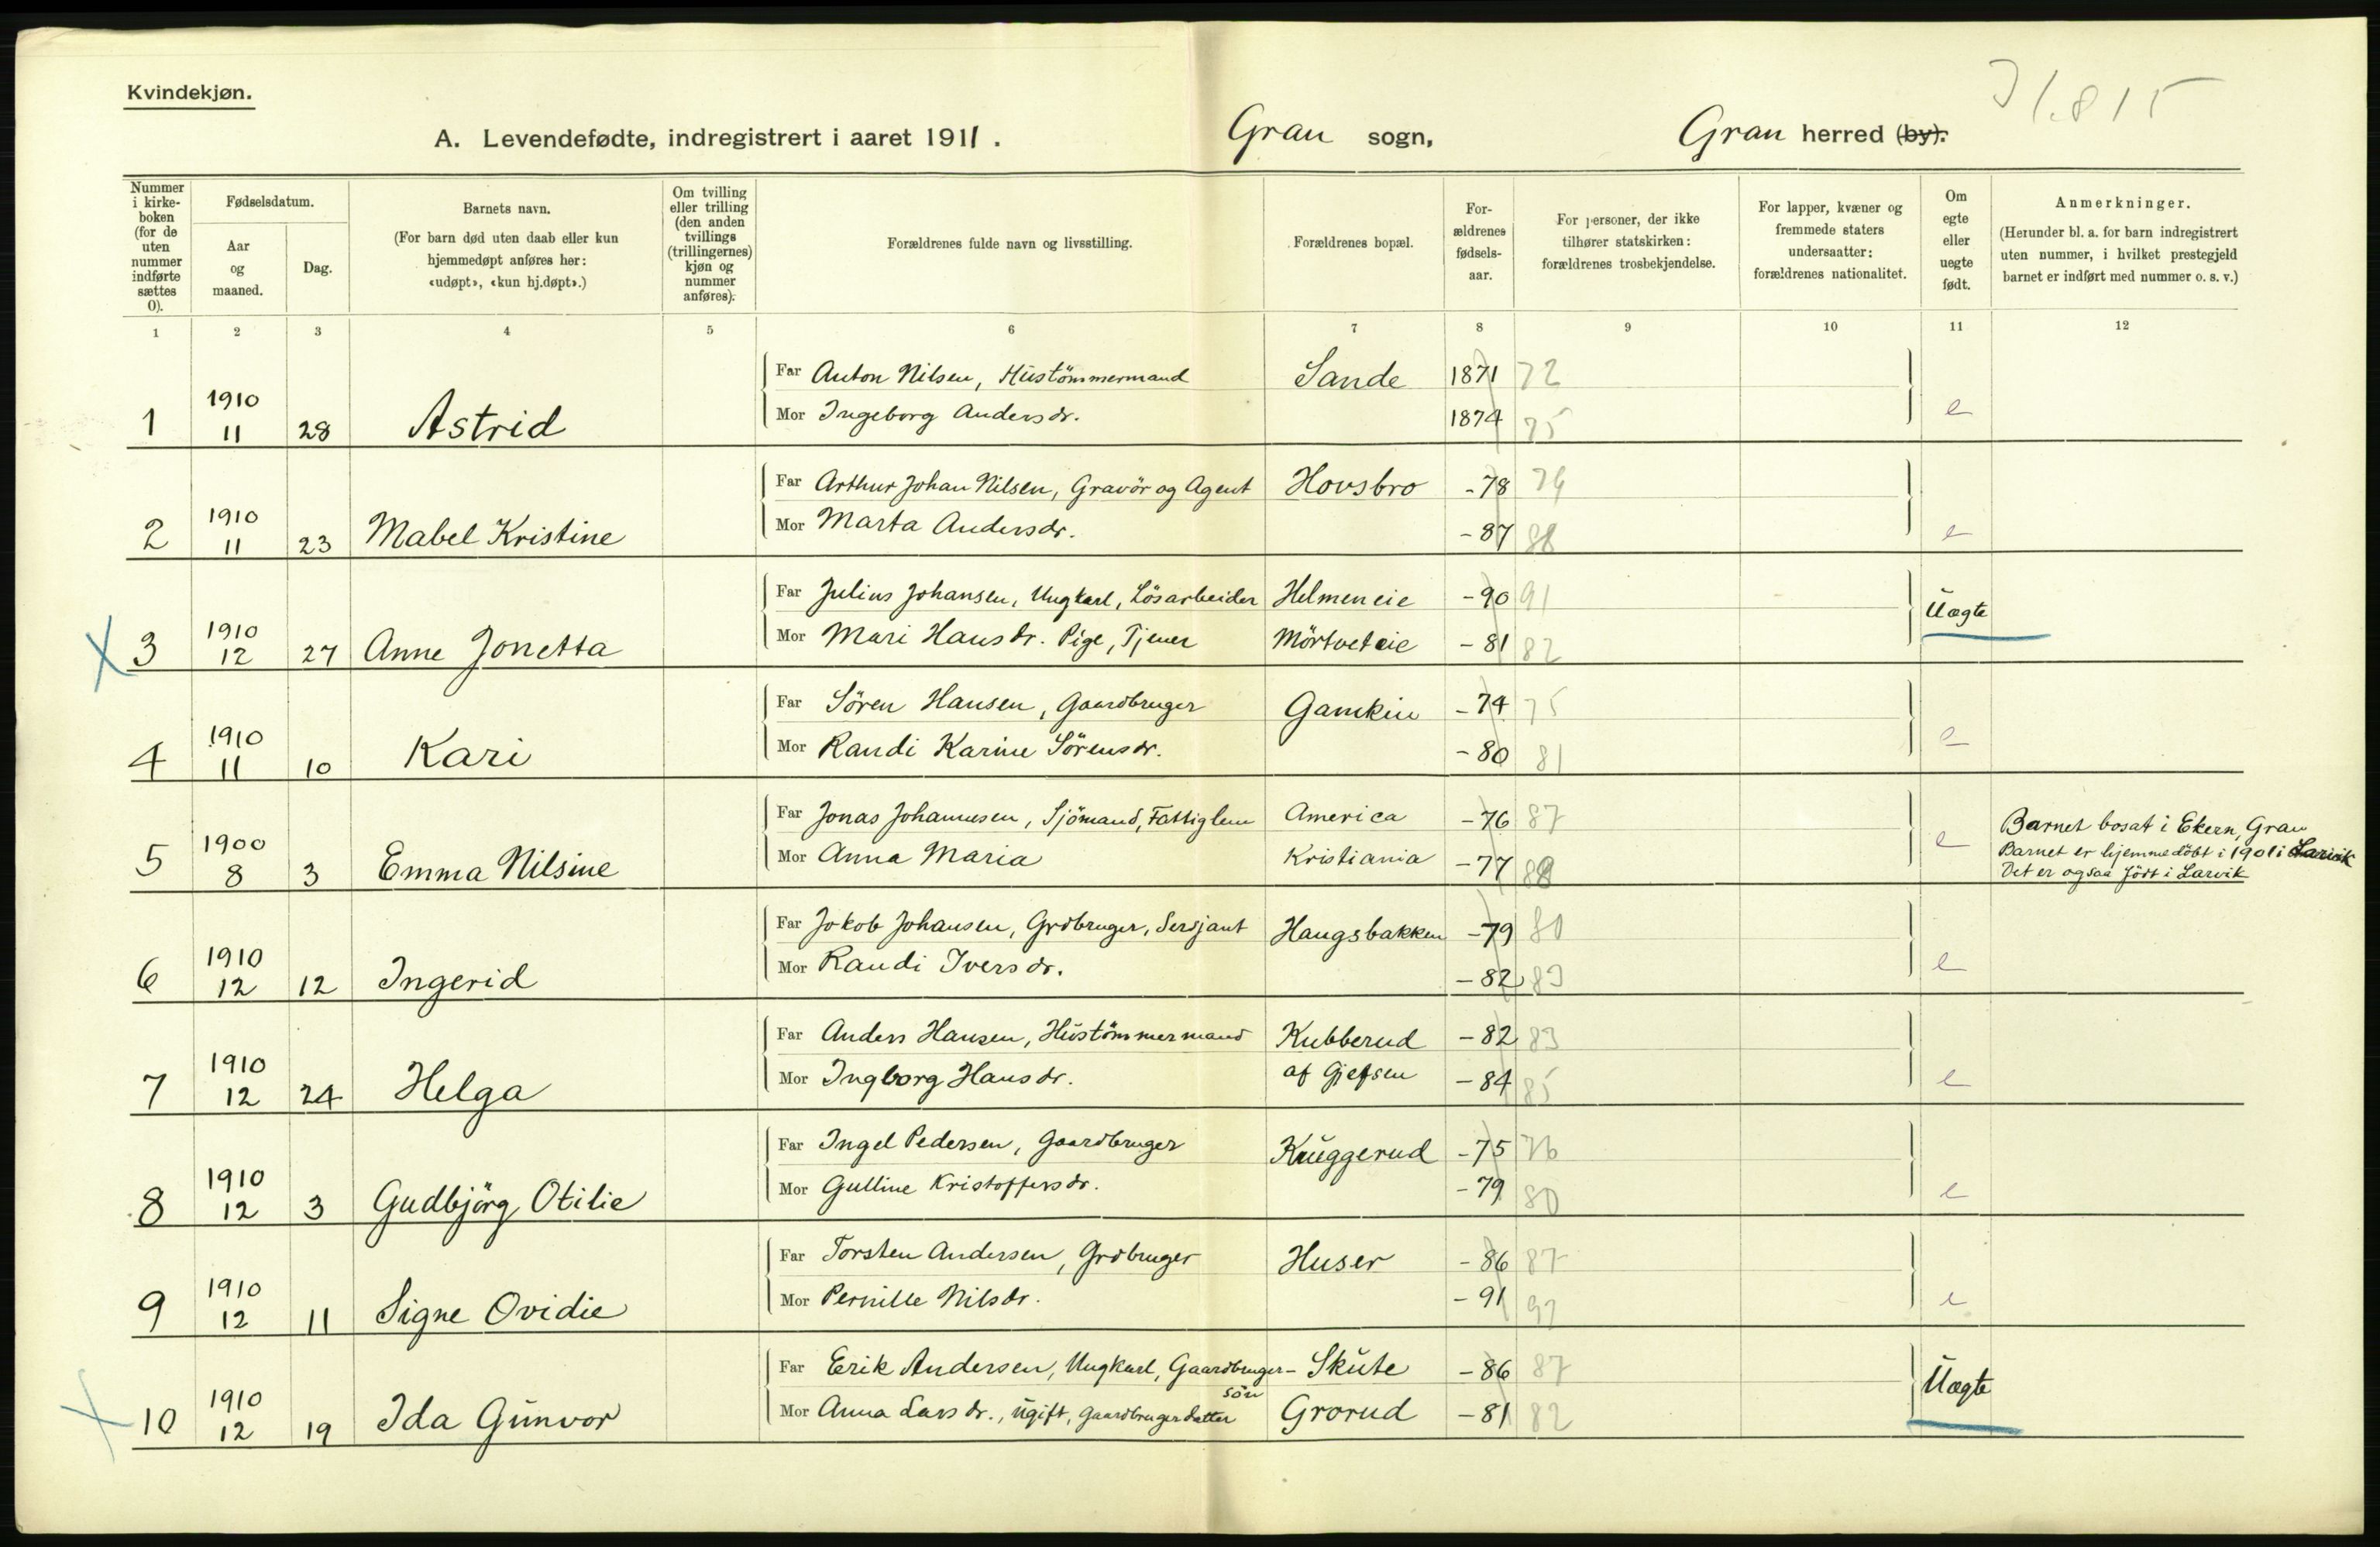 Kvindekjøn.
A. Levendefødte, indregistrert i aaret 1911.
Gran sogn,
Gran herred (by).
Nummer i kirke-boken (for de uten nummer indførte sættes 0).
Fødselsdatum.
Aar og maaned.
Dag.
Barnets navn.
(For barn død uten daab eller kun hjemmedøpt anføres her: «udøpt», «kun hj.døpt».)
Om tvilling eller trilling (den anden tvillings (trillingernes) kjøn og nummer anføres).
Forældrenes fulde navn og livsstilling.
Forældrenes bopæl.
For-ældrenes fødsels-aar.
For personer, der ikke tilhører statskirken: forældrenes trosbekjendelse.
For lapper, kvæner og fremmede staters undersaatter: forældrenes nationalitet.
Om egte eller uegte født.
Anmerkninger.
(Herunder bl. a. for barn indregistrert uten nummer, i hvilket prestegjeld barnet er indført med nummer o. s. v.)
1 2 3 4 5 6 7 8 9 10 11 12
Far Anton Nilsen, Hustömmermand Sande 1871 72
1 1910 11 28 Astrid Mor Ingeborg Andersdr. 1874 75 e
Far Arthur Johan Nilsen, Gravör og Agent Hovsbro -78 79
2 1910 11 23 Mabel Kristine Mor Marta Andersdr. -87 88 e
Far Julius Johansen, Ungkarl, Lösarbeider Helmeneie -90 91 Uægte
3 1910 12 27 Anne Jonetta Mor Mari Hansdr. Pige, Tjener Mörtveteie -81 82
Far Sören Hansen, Gaardbruger Gamkin -74 75
4 1910 11 10 Kari Mor Randi Karine Sörensdr. -80 81 e
Far Jonas Johannesen, Sjömand, Fattiglem America -76 87
5 1900 8 3 Emma Nilsine Mor Anna Maria Kristiania -77 88 e
Barnet bosat i Ekern, Gran
Barnet er hjemmedöbt i 1901 i Larvik
Det er ogsaa födt i Larvik
Far Jokob Johansen, Grdbruger, Sersjant Haugsbakken -79 80
6 1910 12 12 Ingerid Mor Randi Iversdr. -82 83 e
Far Anders Hansen, Hustömmermand Kubberud -82 83
7 1910 12 24 Helga Mor Ingborg Hansdr. af Gjefsen -84 85 e
Far Ingel Pedersen, Gaardbruger Kruggerud -75 76
8 1910 12 3 Gudbjörg Otilie Mor Gulline Kristoffersdr. -79 80 e
Far Torsten Andersen, Grdbruger Huser -86 87
9 1910 12 11 Signe Ovidie Mor Pernille Nilsdr. -91 92 e
Far Erik Andersen, Ungkarl, Gaardbruger-sön Skute -86 87 Uægte
10 1910 12 19 Ida Gunvor Mor Anna Larsdr., ugift, Gaardbrugerdatter Grorud -81 82